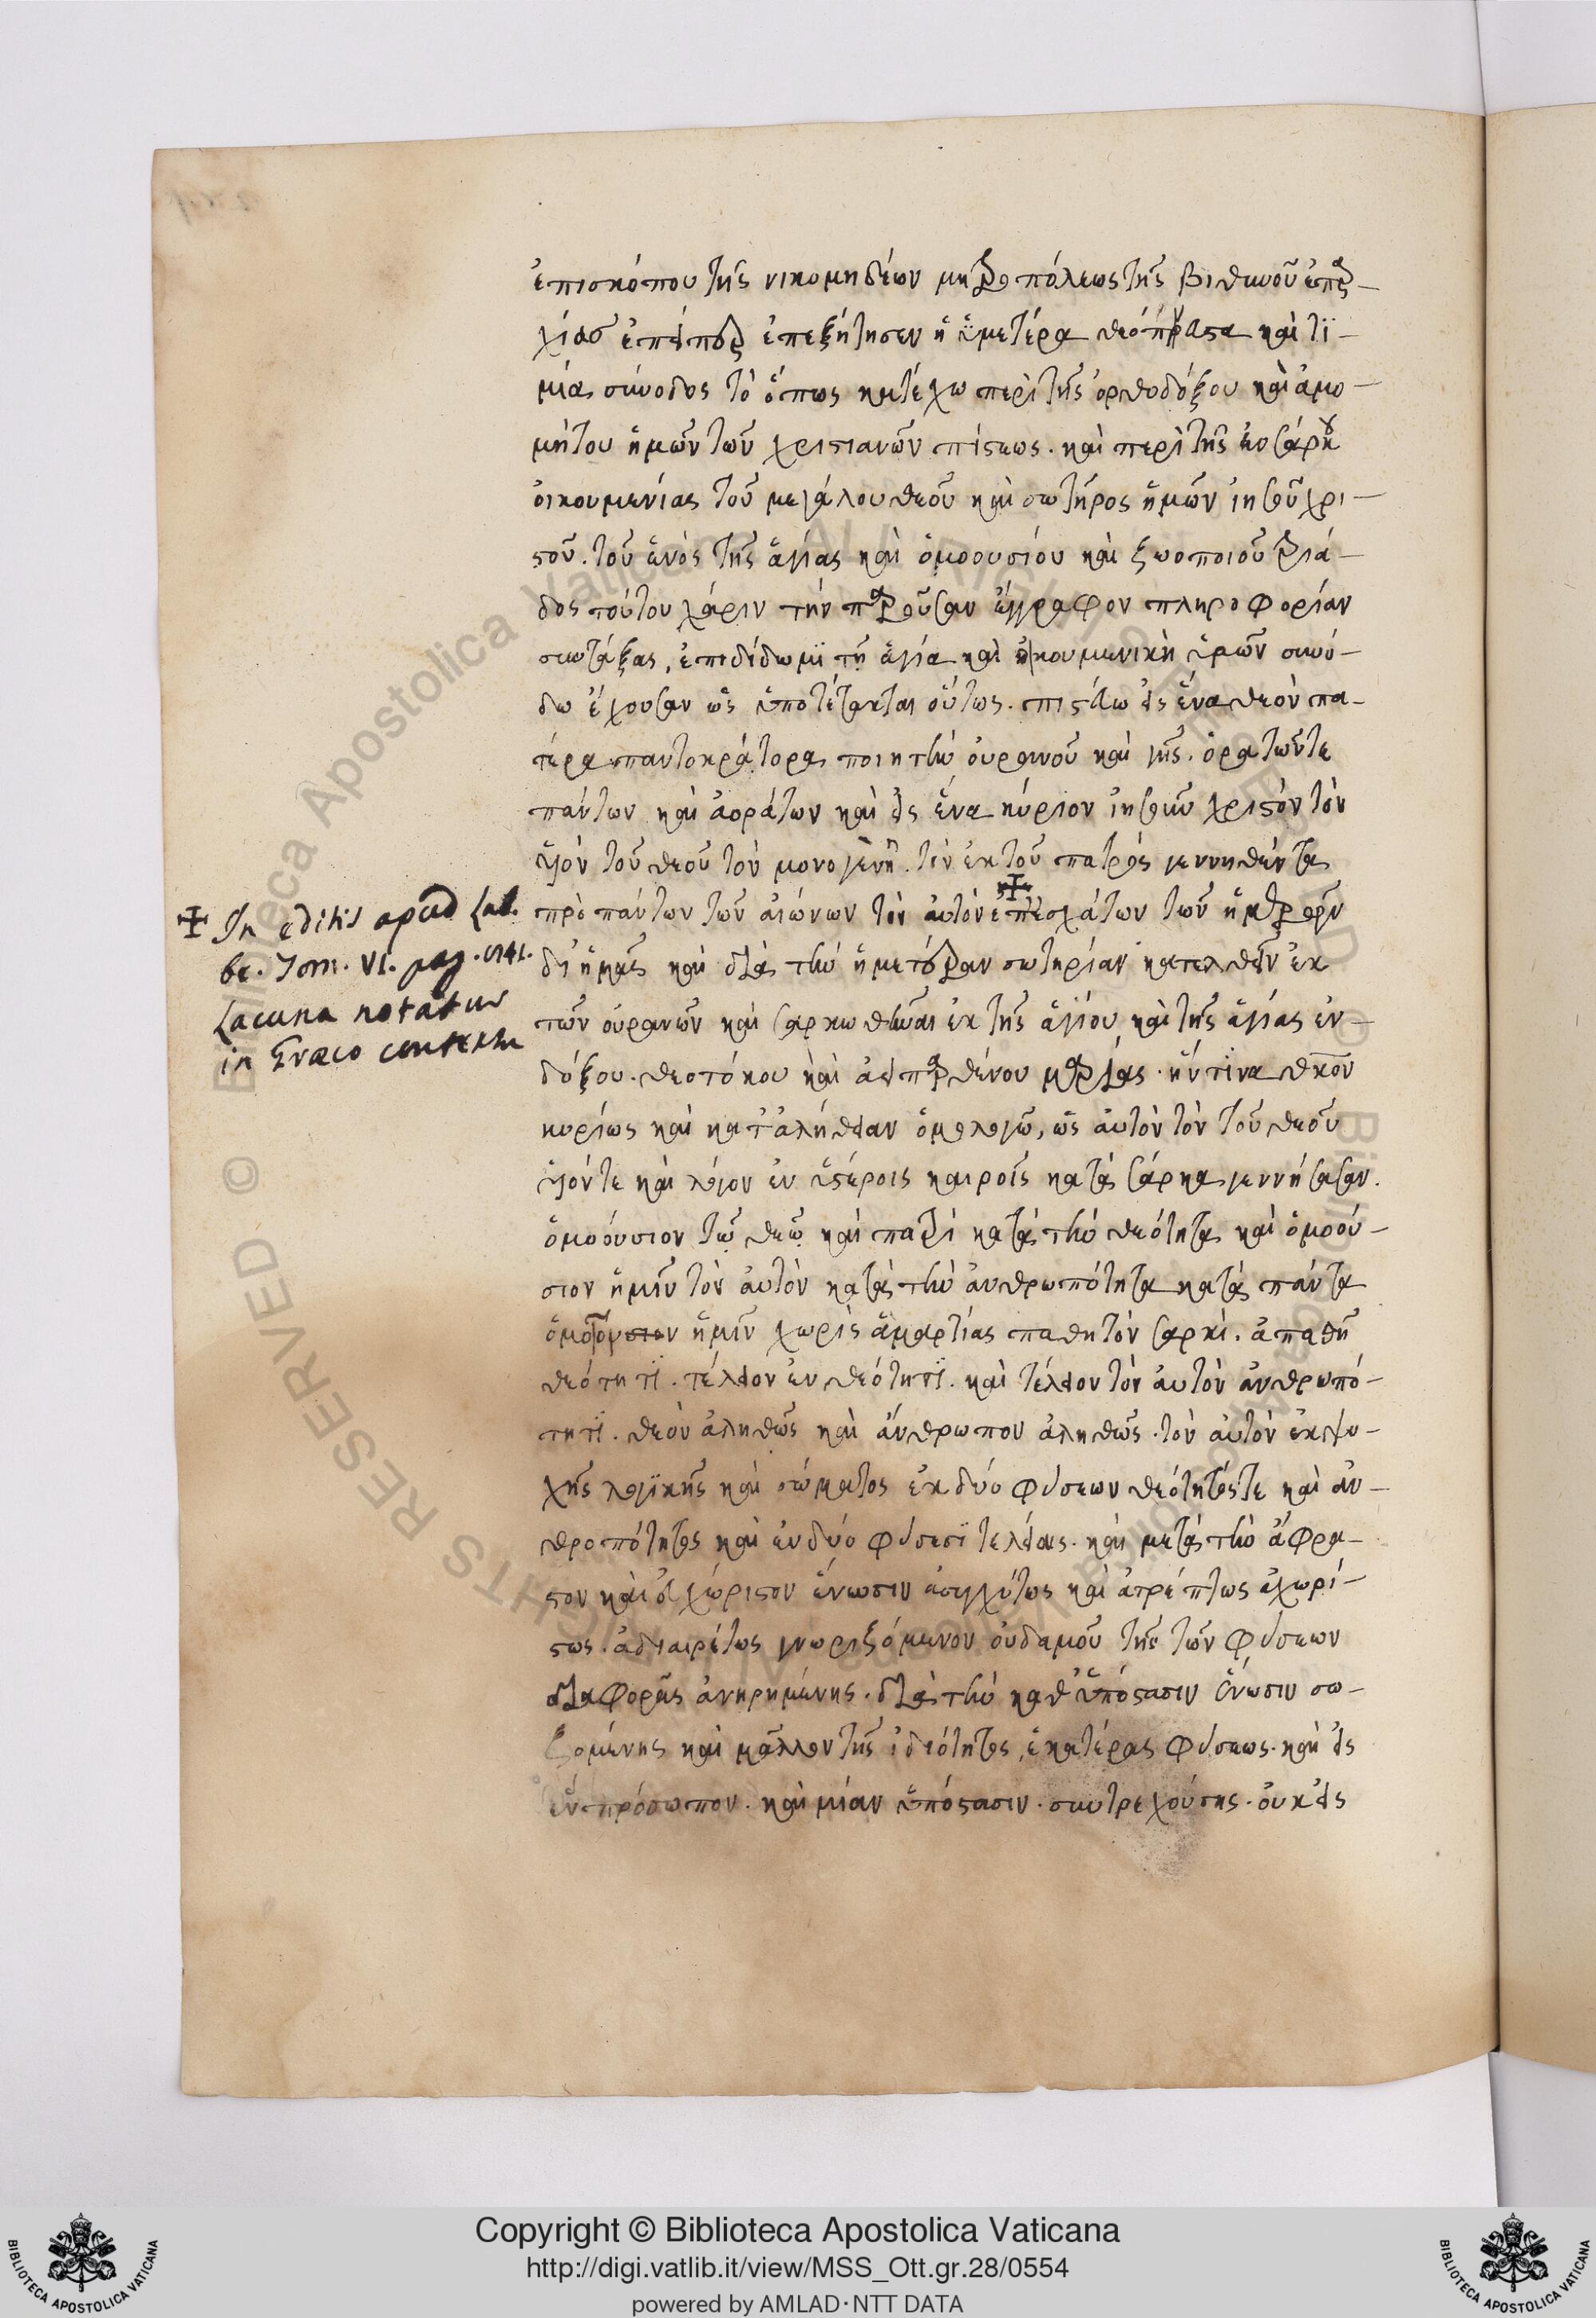 ἐπισκόπου τῆς νικομηδέων μητροπόλεως τῆς βιθυνοῦ ἐπαρ-
χίας ἐπέτρ ἐπεζήτησεν ἡ ὑμετέρα θεόπνευστα καὶ τϊ-
μία σύνοδος τὸ ὅπως κατέχω περὶ τῆς ὀρθοδόξου καὶ ἀμω-
μήτου ἡμῶν τῶν χριστιανῶν πίστεως. καὶ περὶ τῆς ἐνσάρκου
οἰκουμενίας τοῦ μεγάλου θεοῦ καὶ σωτῆρος ἡμῶν ἰησοῦ χρι-
στοῦ. τοῦ ἑνὸς τῆς ἁγίας καὶ ὁμοουσίου καὶ ζωοποιοῦ τριά-
δος τούτου χάριν τὴν παροῦσαν ἔγγραφον πληροφορίαν
συντάξας, ἐπιδίδωμϊ τῇ ἁγία καὶ οἰκουμενικὴ ὑμῶν συνό-
δω ἔχουσαν ὡς ὑποτέτακται οὕτως. πιστεύω εἰς ἕνα θεὸν πα-
τέρα παντοκράτορα ποιητὴν οὐρανοῦ καὶ γῆς. ὁρατῶν τε
πάντων καὶ ἀοράτων καὶ εἰς ἕνα κύριον ἰησοῦν χριστὸν τὸν
υἱὸν τοῦ θεοῦ τὸν μονογενῆ. τὸν ἐκ τοῦ πατρὸς γεννηθέντα
πρὸ πάντων τῶν αἰώνων τὸν αὐτὸν ἐπ' ἐσχάτων τῶν ἡμερῶν
δι' ἡμᾶς καὶ διὰ τὴν ἡμετέραν σωτηρίαν κατελθεῖν ἐκ
τῶν οὐρανῶν καὶ σαρκωθῆναι ἐκ τῆς ἁγίου καὶ τῆς ἁγίας ἐν-
δόξου. θεοτόκου καὶ ἀειπαρθένου μαρίας. ἥντινα θκον
κυρίως καὶ κατ' ἀλήθειαν ὁμολογῶ, ὡς αὐτὸν τὸν τοῦ θεοῦ
υἱόν τε καὶ λόγον ἐν ὑστέροις καιροῖς κατὰ σάρκα γεννήσασαν.
ὁμοούσιον τῷ θεῷ καὶ πατρὶ κατὰ τὴν θεότητα καὶ ὁμοού-
σιον ἡμῖν τὸν αὐτὸν κατὰ τὴν ἀνθρωπότητα κατὰ πάντα
ἡμῖν χωρὶς ἁμαρτίας παθητὸν σαρκὶ. ἀπαθῆ
θεότητϊ. τέλειον ἐν θεότητϊ. καὶ τέλειον τὸν αὐτὸν ἀνθρωπό-
τητϊ. θεὸν ἀληθῶς καὶ ἄνθρωπον ἀληθῶς. τὸν αὐτὸν ἐκ ψυ-
χῆς λογϊκῆς καὶ σώματος ἐκ δύο φύσεων θεότητός τε καὶ ἀν-
θροπότητος καὶ ἐν δύο φύσεσϊ τελείαις. καὶ μετὰ τὴν ἄφρα-
στον καὶ ἀχώριστον ἕνωσιν ἀσυγχύτως καὶ ἀτρέπτως ἀχωρί-
στως. ἀδιαιρέτως γνωριζόμενον οὐδαμοῦ τῆς τῶν φύσεων
διαφορᾶς ἀνῃρημένης. διὰ τὴν καθ' ὑπόστασιν ἕνωσιν σω-
ζομένης καὶ μᾶλλον τῆς ἰδιότητος ἑκατέρας φύσεως. καὶ εἰς
ἓν πρόσωπον. καὶ μίαν ὑπόστασιν. συντρεχούσης. οὐκ εἰς
✠ In editis apud Lab.
be. Tom. VI. pag.
Lacuna notatur
in Græco contextu
Copyright © Biblioteca Apostolica Vaticana
http://digi.vatlib.it/view/MSS_Ott.gr.28/0554
powered by AMLAD·NTT DATA
BIBLIOTECA APOSTOLICA VATICANA
BIBLIOTECA APOSTOLICA VATICANA